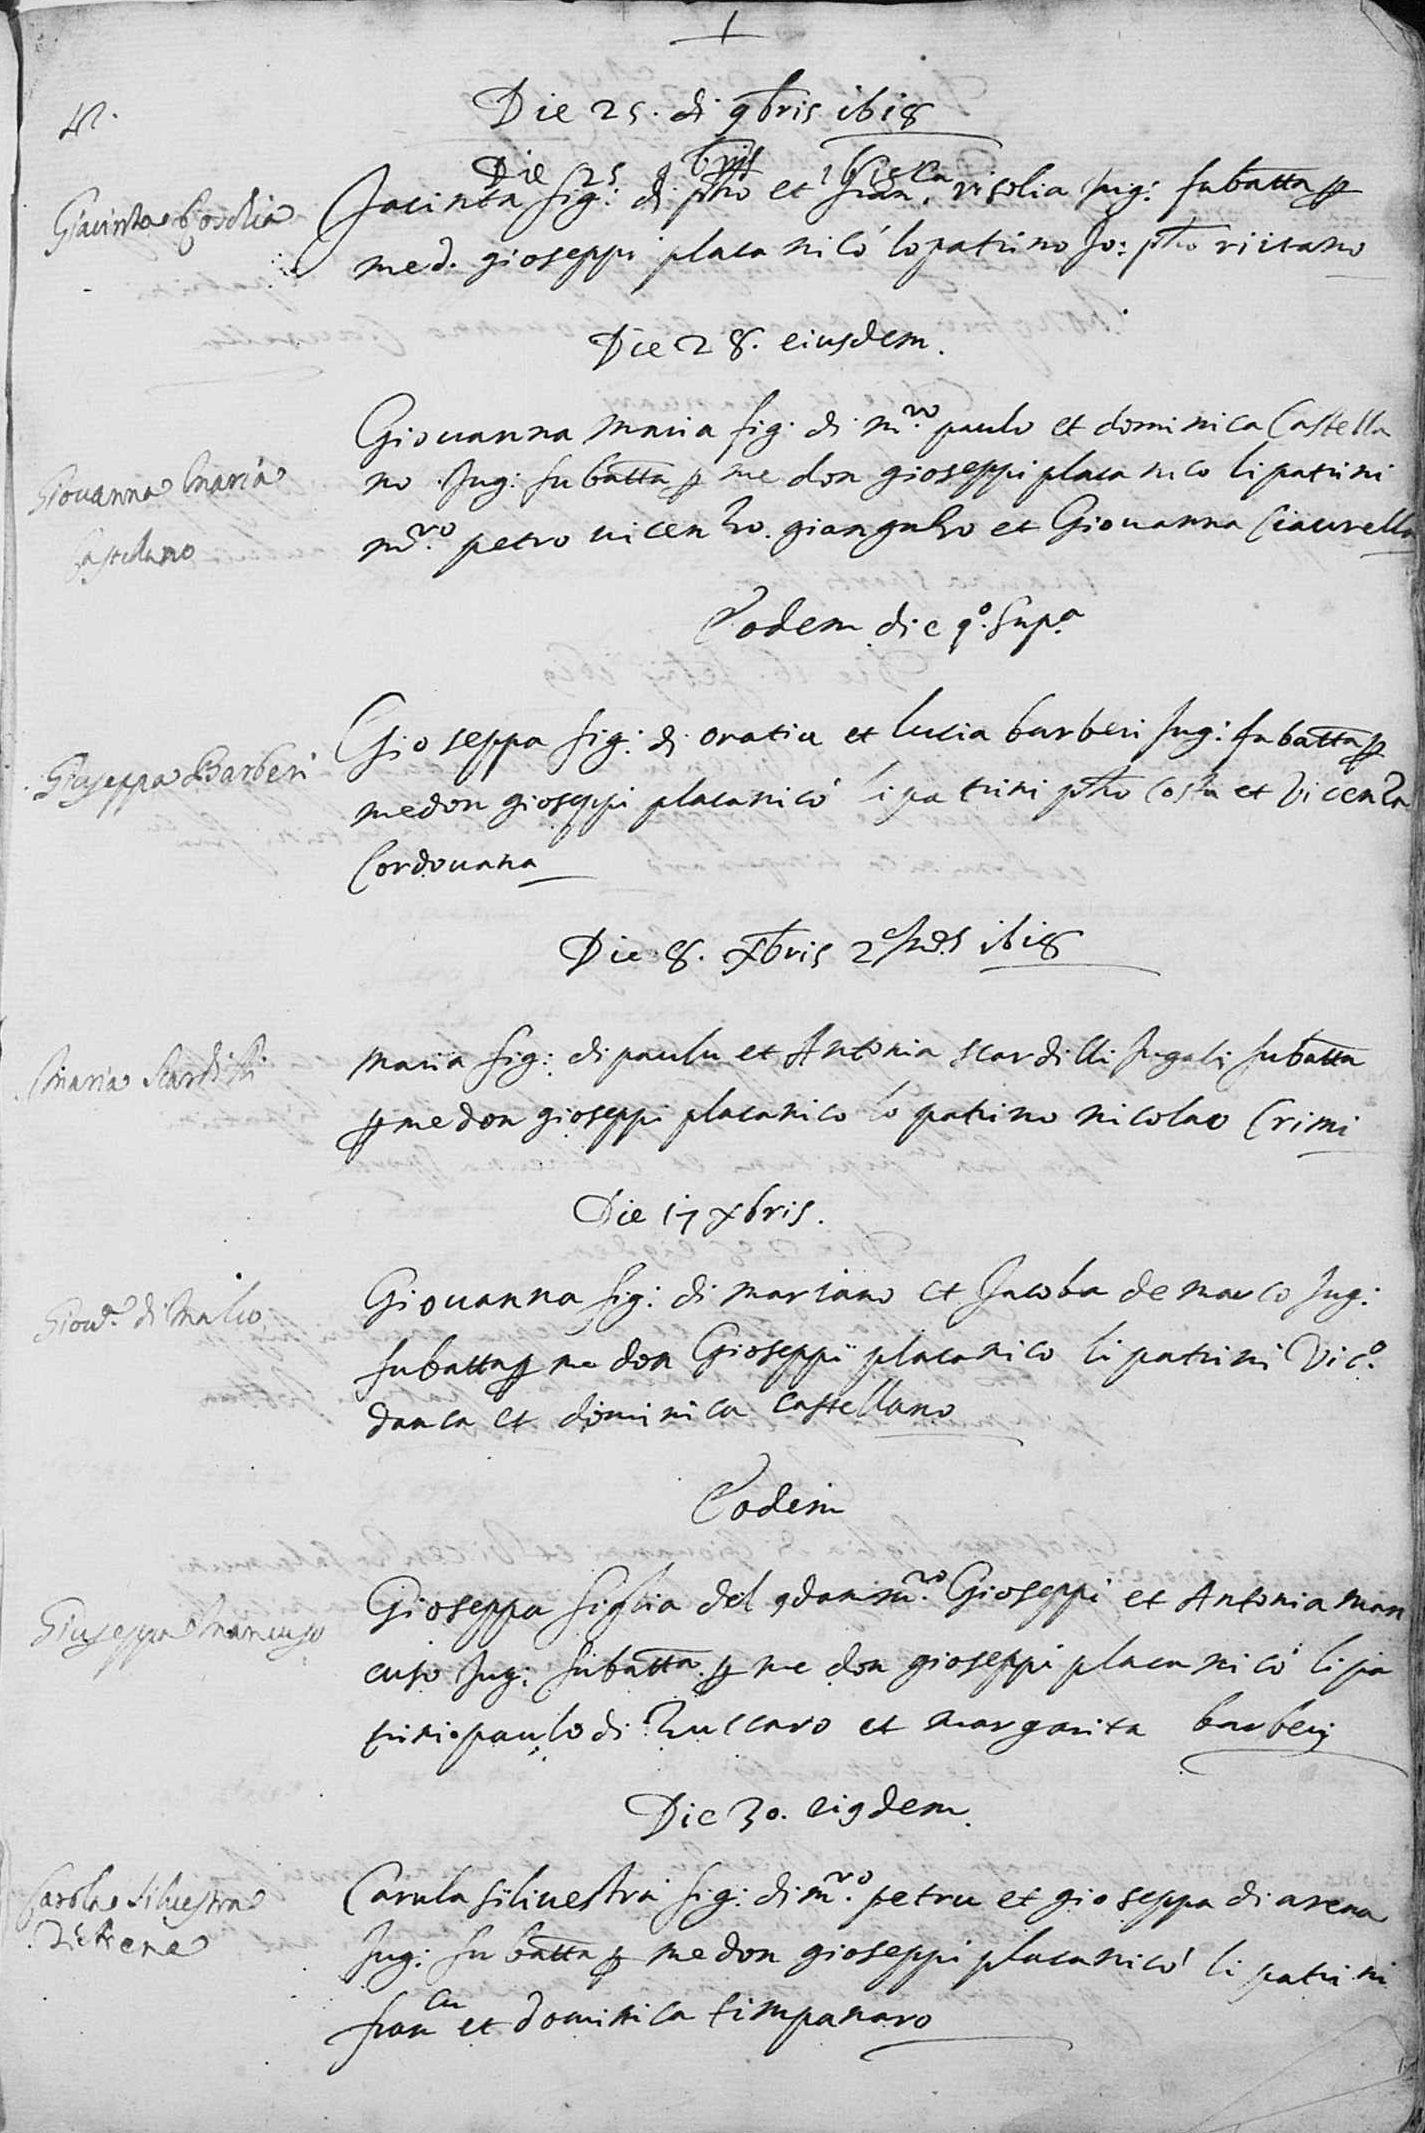 Die 25. di 9bris 1618
Die 25 9bris 1618
Giacinta
Jacinta fig: di pho et fran.ca risolia Jug: fu batta p
me d. gioseppi placanicò lo patrino Jo: pho riccano
Die 28. eiusdem.
Giovanna Maria
Castellano
Giovanna maria fig. di m.ro paulo et dominica Castella
no Jug: fu batta p me don gioseppi placanico li patrini
m.ro petro vicenzo giangulzo et Giovanna Ciaurella
Eodem die q.o sup.a
Giuseppa Barberi
Gioseppa fig: di oratiu et lucia barberi Jug: fu batta p
me don gioseppi placanicò li patrini pho costa et Vicenza
Cordovana
Die 8. xbris 2e Ind.s 1618
Maria Scardilli
maria fig: di paulu et Antonia scardilli Jugali fu batta
p me don gioseppi placanico lo patrino nicolao Crimi
Die 17 xbris.
Giov.a di Malco
Giovanna fig: di mariano et Jacoba de marco Jug:
fu batta p me don Gioseppi placanico li patrini Vic.o
danca et dominica castellano
Eodem
Giuseppa Mancuso
Gioseppa figlia del qdam m.ro Gioseppi et Antonia man
cuso Jug: fu batta p me don gioseppi placanicò li pa
trini paulo di Zuccaro et margarita barberi
Die 30. eiusdem.
Carola Silvestra
di Arena
Carula silivestra fig: di m.ro petru et gioseppa di arena
Jug: fu batta p me don gioseppi placanicò li patrini
fran.cu et dominica timpanaro